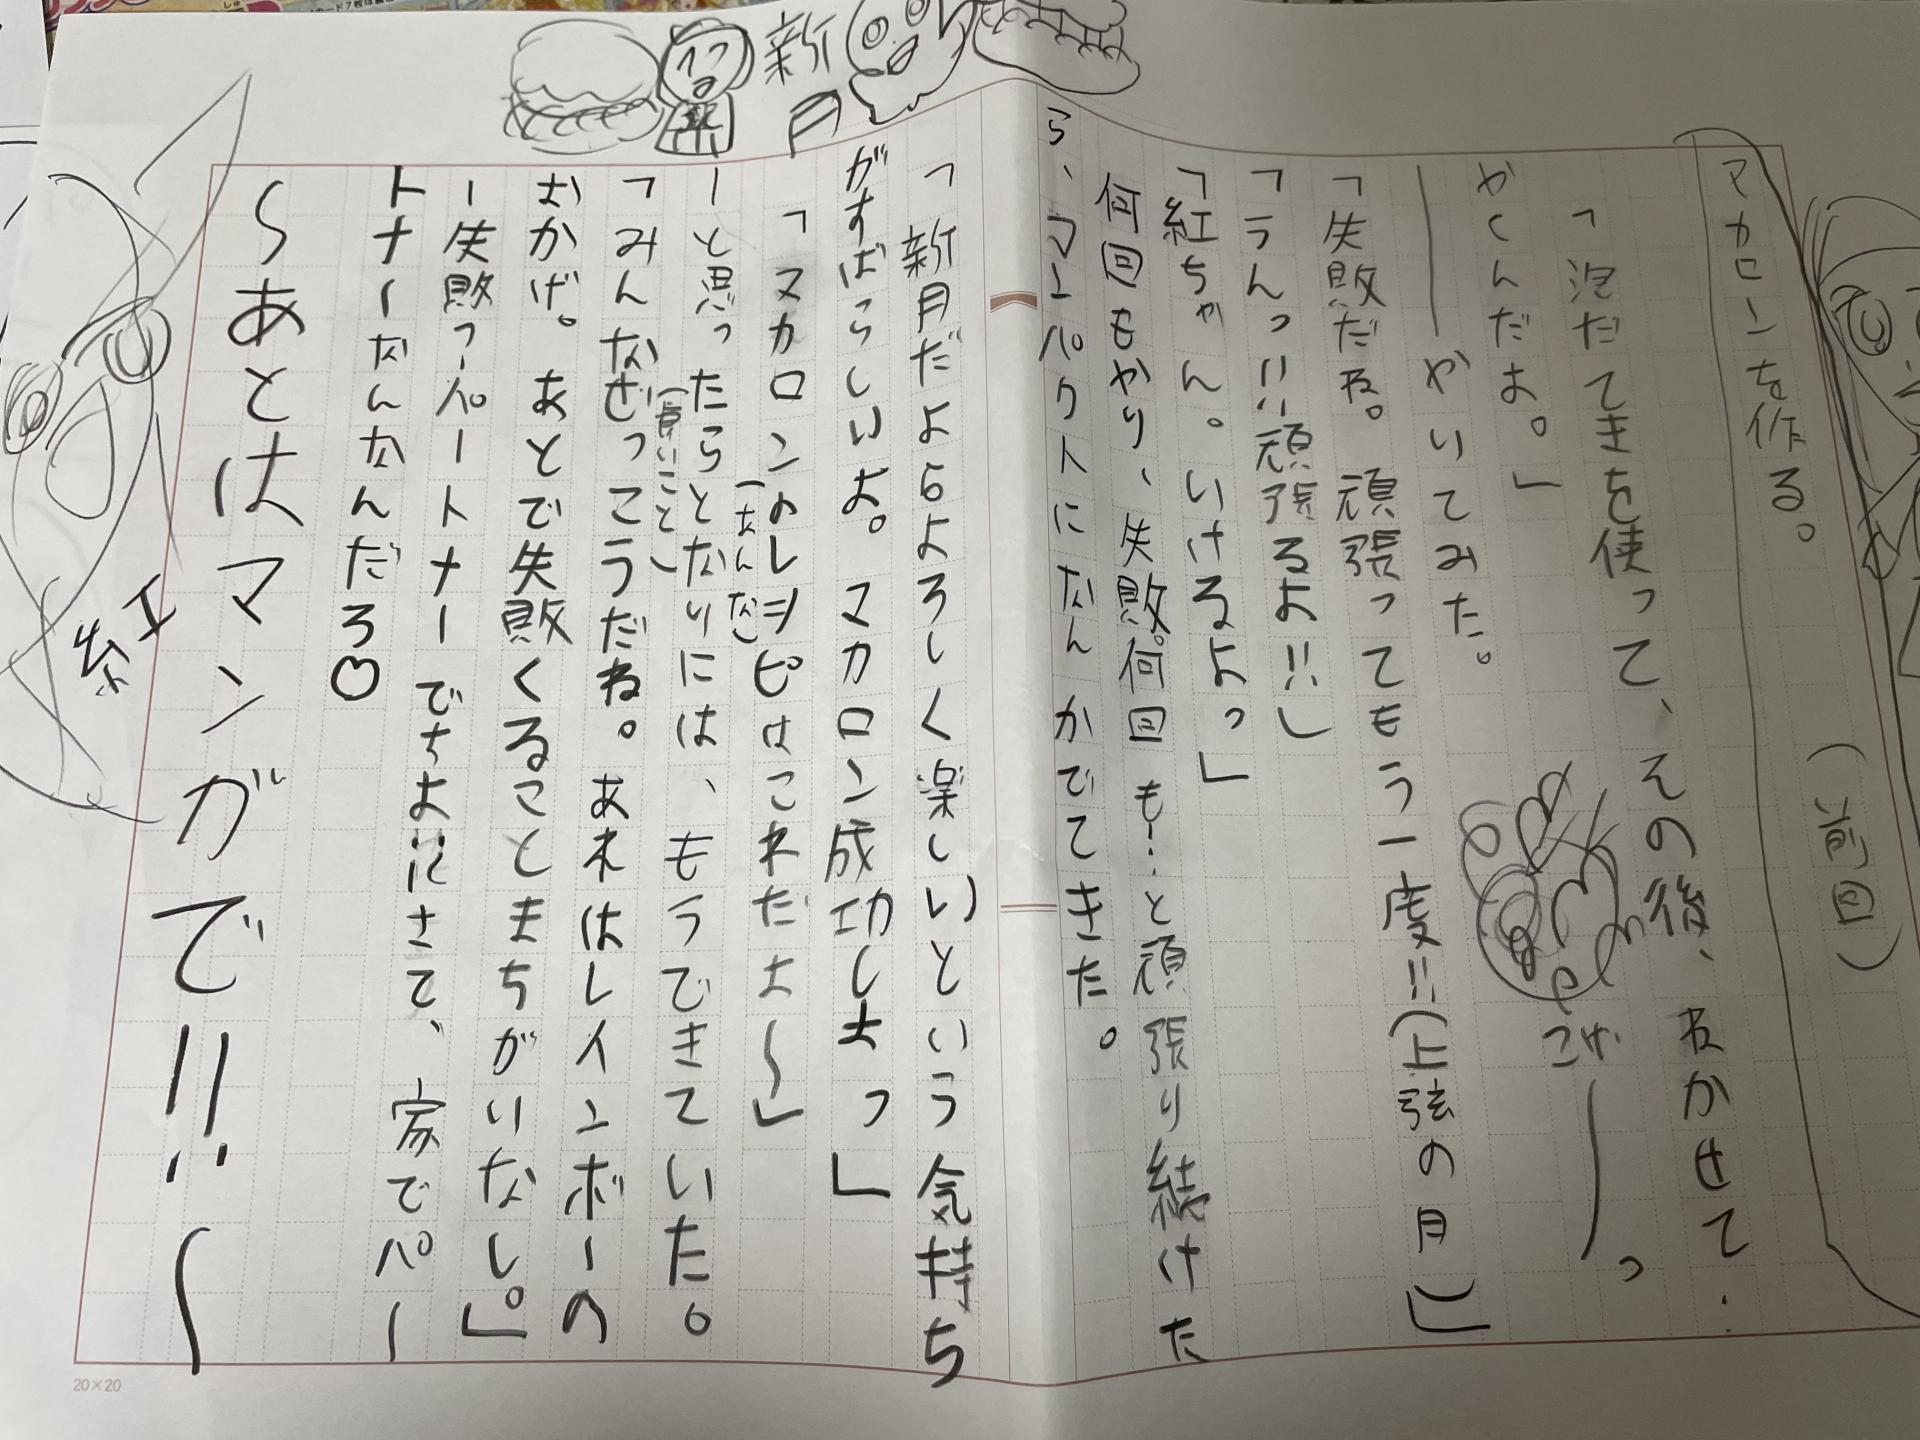 (前回)
マカロンを作る。
「泡だてきを使って、その後、ねかせて.
やくんだよ。」
――やいてみた。
こげ――っ
「失敗だね。頑張ってもう一度!!(上弦の月)」
「うんっ!!頑張るよ!!」
「紅ちゃん。いけるよっ」
何回もやり、失敗。何回も…と頑張り続けた
ら、マンパクトになんかでてきた。
新月
「新月だよらよろしく楽しいという気持ち
がすばらしいよ。マカロン成功しよっ」
「マカロンのレヲピはこれだよ〜」
ーと思ったらとなりには、もうできていた。
「みんなぜっこうだね。あれはレインボーの
おかげ。あとで失敗くることまちがいなし。」
ー失敗っーパートナーでちよ!!にさて、家でパー
トナーなんなんだろ♡
〜あとはマンガで!!〜
紅
20×20